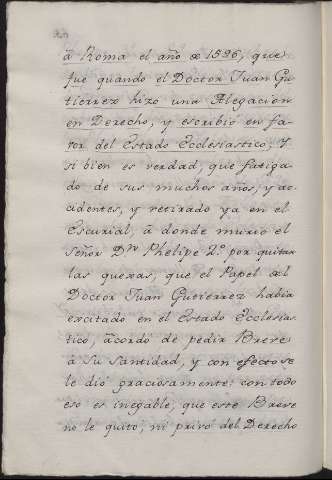 à Roma el año de 1596, que
fue quando el Doctor Juan Gu-
tierrez hizo una Alegacion
en Derecho, y escribió en fa-
vor del Estado Ecclesiastico, Y
si bien es verdad, que fatiga-
do de sus muchos años, y ac-
cidentes, y retirado ya en el
Escurial, à donde murió el
Señor Dn Phelipe 2º por quitar
las quexas, que el Papel del
Doctor Juan Gutierrez habia
excitado en el Estado Ecclesias-
tico, acordó de pedir Breve
à Su Santidad, y con efecto se
le dió graciosamente: con todo
eso es inegable, que este Breve
no le quitó, ni privó del Derecho